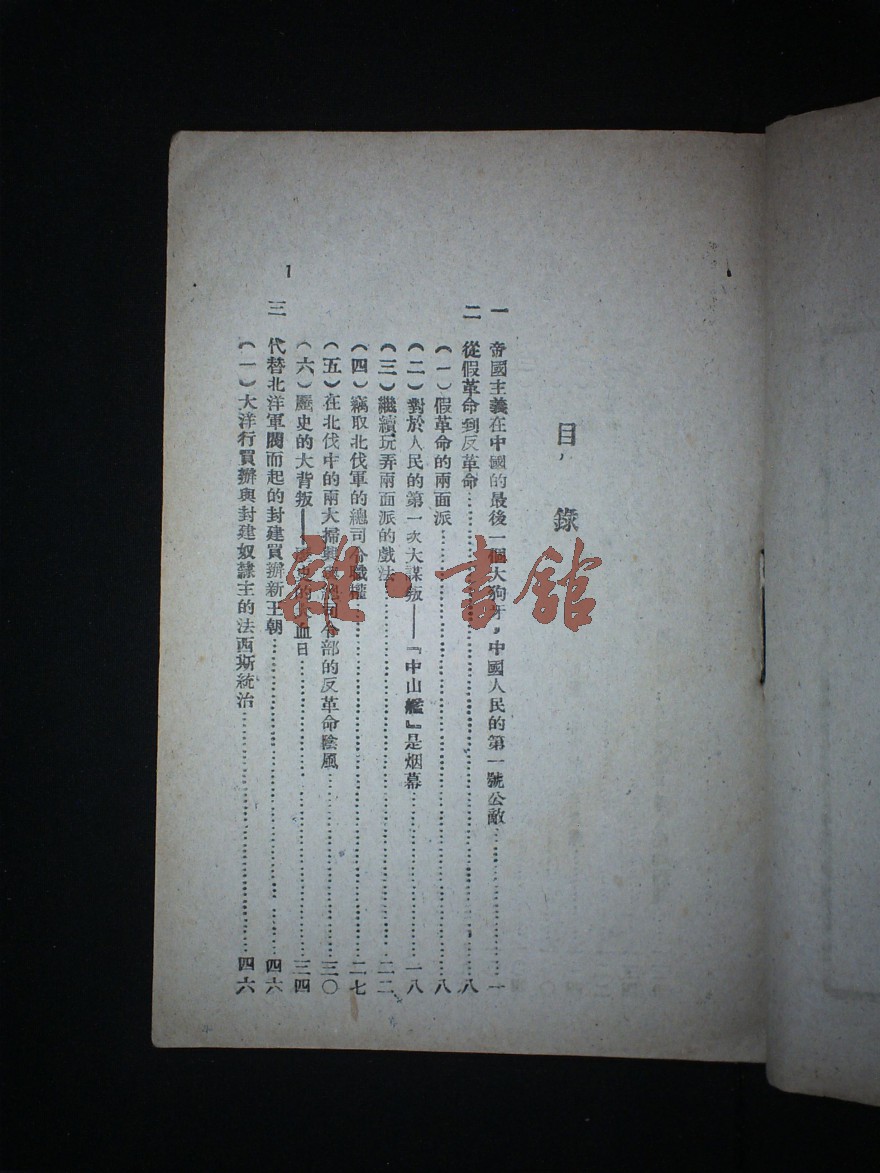 目錄
一 帝國主義在中國的最後一個大狗牙，中國人民的第一號公敵……一
二 從假革命到反革命……八
（一）假革命的兩面派……八
（二）對於人民的第一次大謀叛——『中山艦』是烟幕……一八
（三）繼續玩弄兩面派的戲法……二二
（四）竊取北伐軍的總司令職權……二七
（五）在北伐中的兩大 總司令部的反革命陰風……三〇
（六）歷史的大背叛——歷史的 血日……三四
三 代替北洋軍閥而起的封建買辦新王朝……四六
（一）大洋行買辦與封建奴隸主的法西斯統治……四六
1
雜·書館